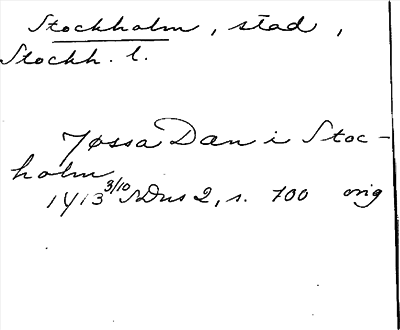 Stockholm, stad,
Stockh. l.
Jøssa Dan i Stoc-
holm
1413 3/10 SDns 2, s. 700 orig